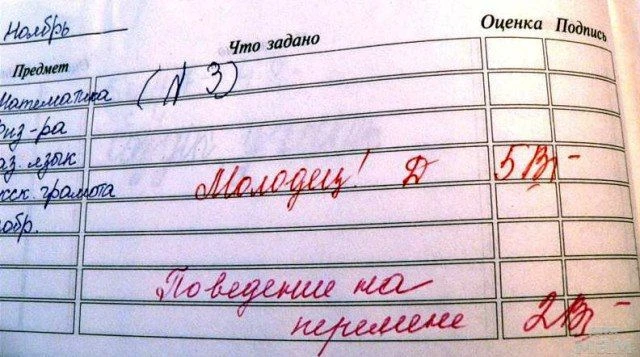 Ноябрь
Предмет Что задано Оценка Подпись
Математика (N 3)
Физ-ра
Каз. язык
Русск. грамота Молодец! Д 5
Изобр.
Поведение на
перемене 2